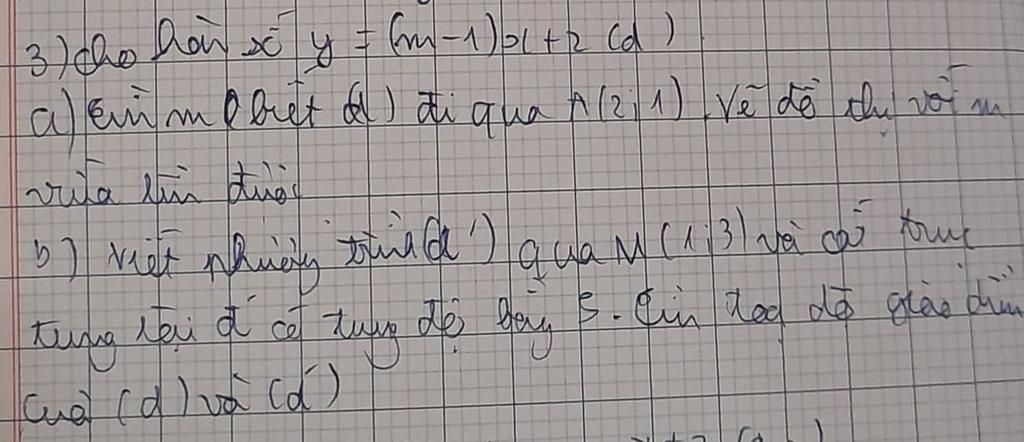 3) cho hàm số y = (m-1)x+2 (d)
a) tìm m biết (d) đi qua A(2;1). Vẽ đồ thị với m
vừa tìm được
b) Viết phương trình (d') qua M(1;3) và cắt trục
tung tại đ có tung độ bằng 5. Tìm tọa độ giao điểm
của (d) và (d')